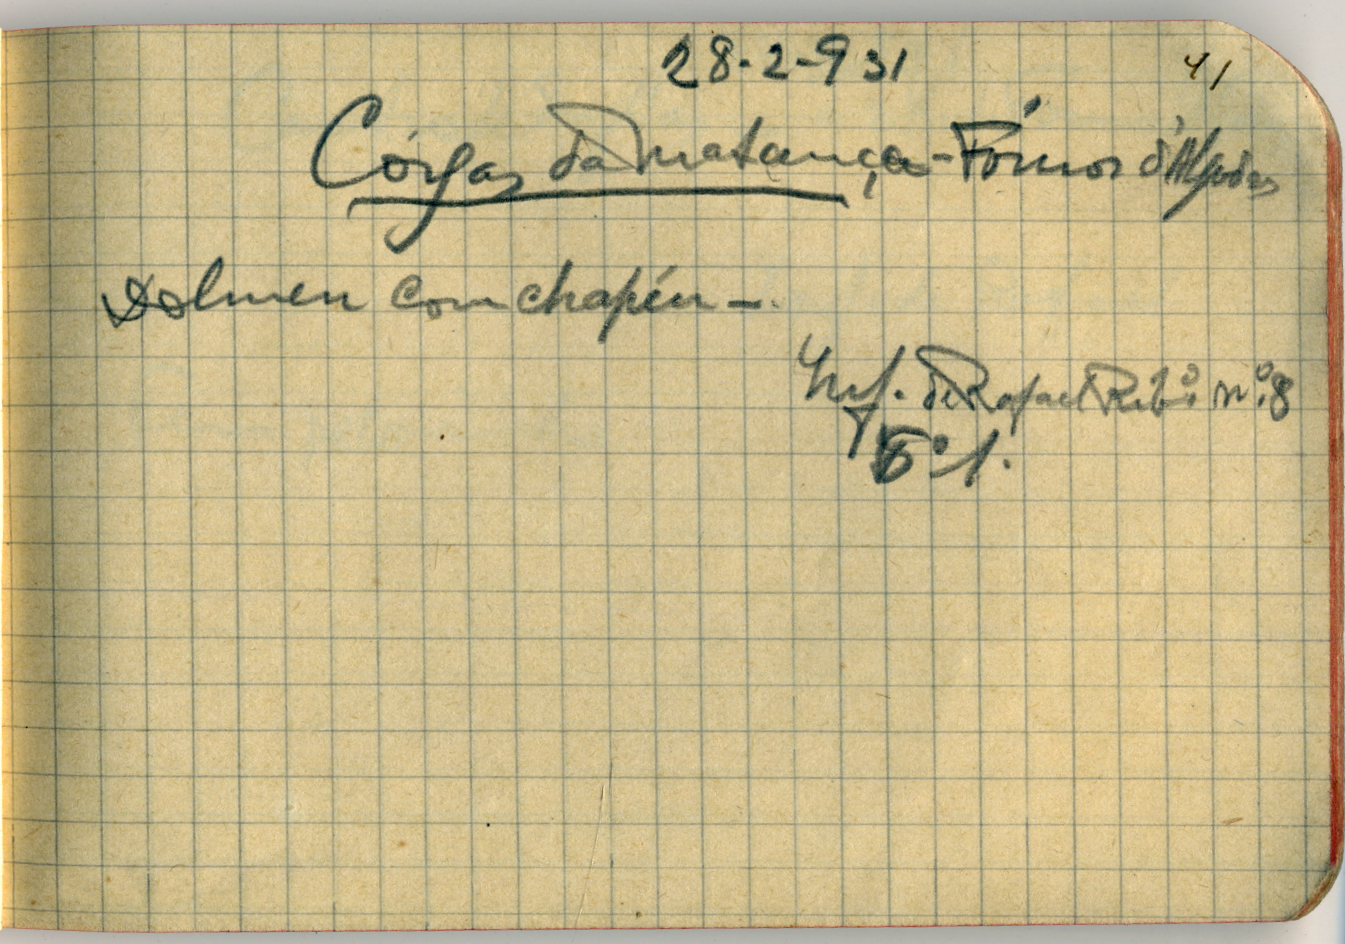 28-2-931
41
Córgas da Matança - Fornos d'Algodres
Dolmen com chapéu -
Inf. de Rafael Ribº nº 8